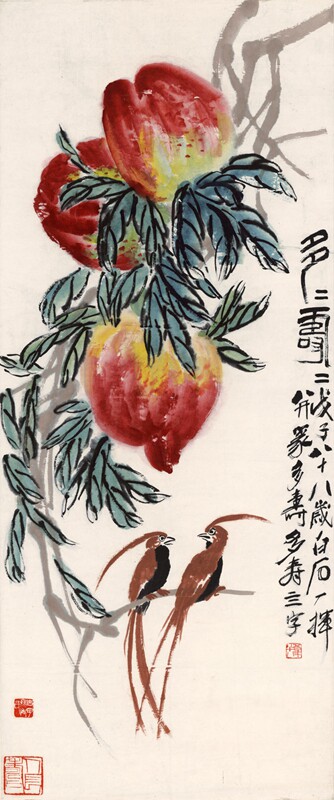 多二壽二
戊子八十八歲白石一揮
并篆多壽多壽三字